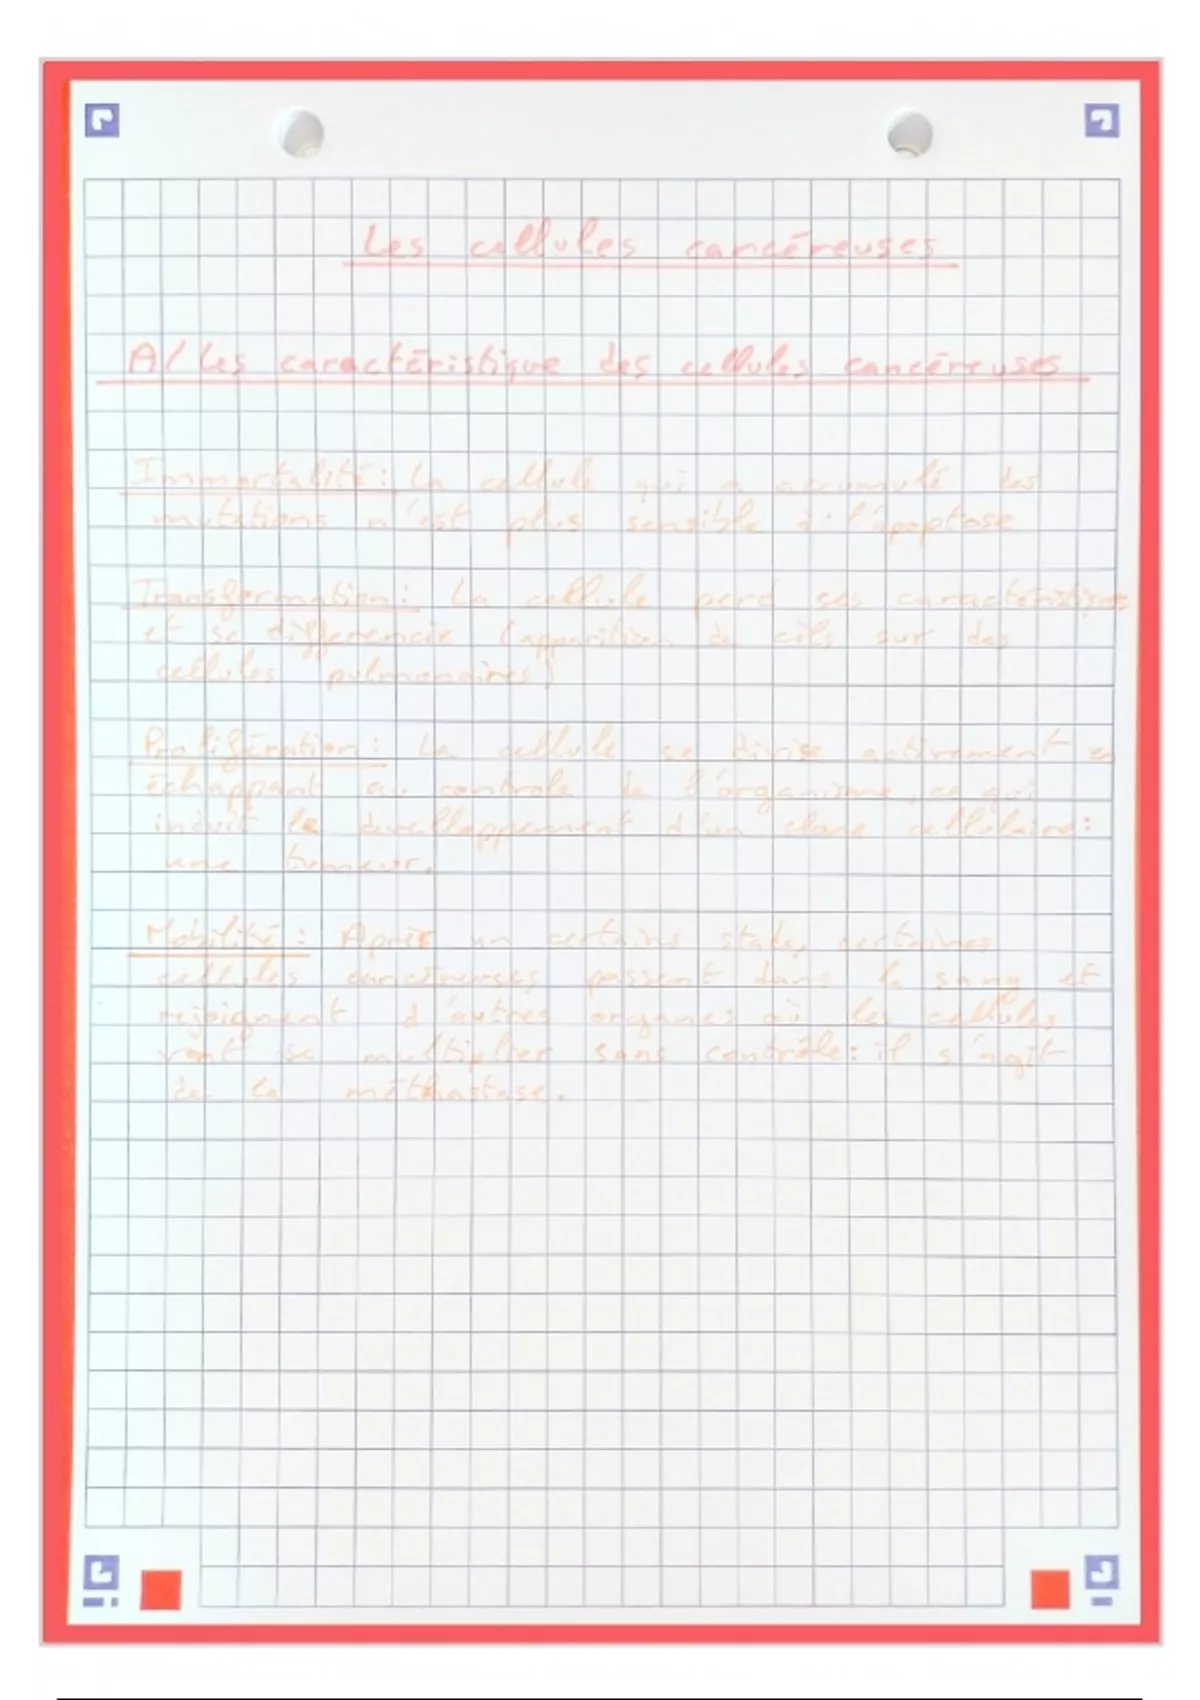 Les cellules cancéreuses
A/ Les caractéristique des cellules cancéreuses
Immortalité : La cellule qui a accumulé des
mutations n'est plus sensible à l'apoptose
Transformation : La cellule perd ses caractéristiques
et se différencie (apparition de cils sur des
cellules pulmonaires)
Prolifération : La cellule se divise activement en
échappant au contrôle de l'organisme, ce qui
induit le developpement d'un clone cellulaire :
une tumeur.
Mobilité : Après un certains stade, certaines
cellules cancéreuses passent dans le sang et
rejoignent d'autres organes où les cellules
vont se multiplier sans contrôle : il s'agit
de la méthastase.